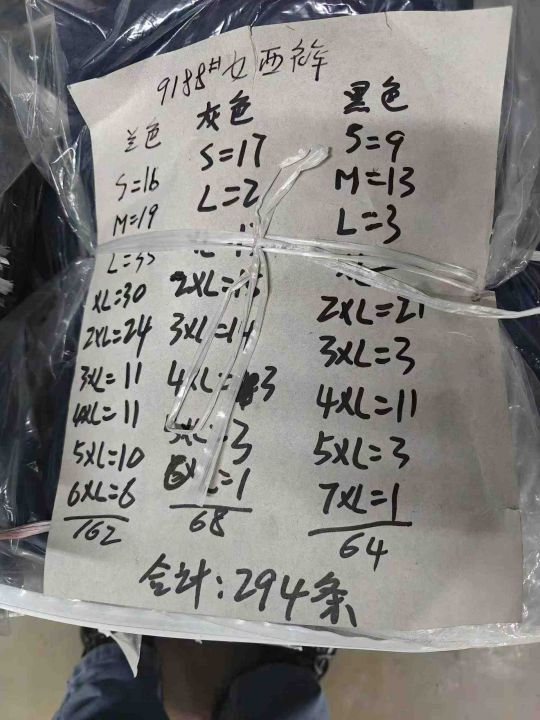 9188#女西裤
兰色
S=16
M=19
L=35
XL=30
2XL=24
3XL=11
4XL=11
5XL=10
6XL=6
162
灰色
S=17
L=2
2XL=
3XL=14
4XL=3
5XL=3
6XL=1
68
黑色
S=9
M=13
L=3
2XL=21
3XL=3
4XL=11
5XL=3
7XL=1
64
合计:294条